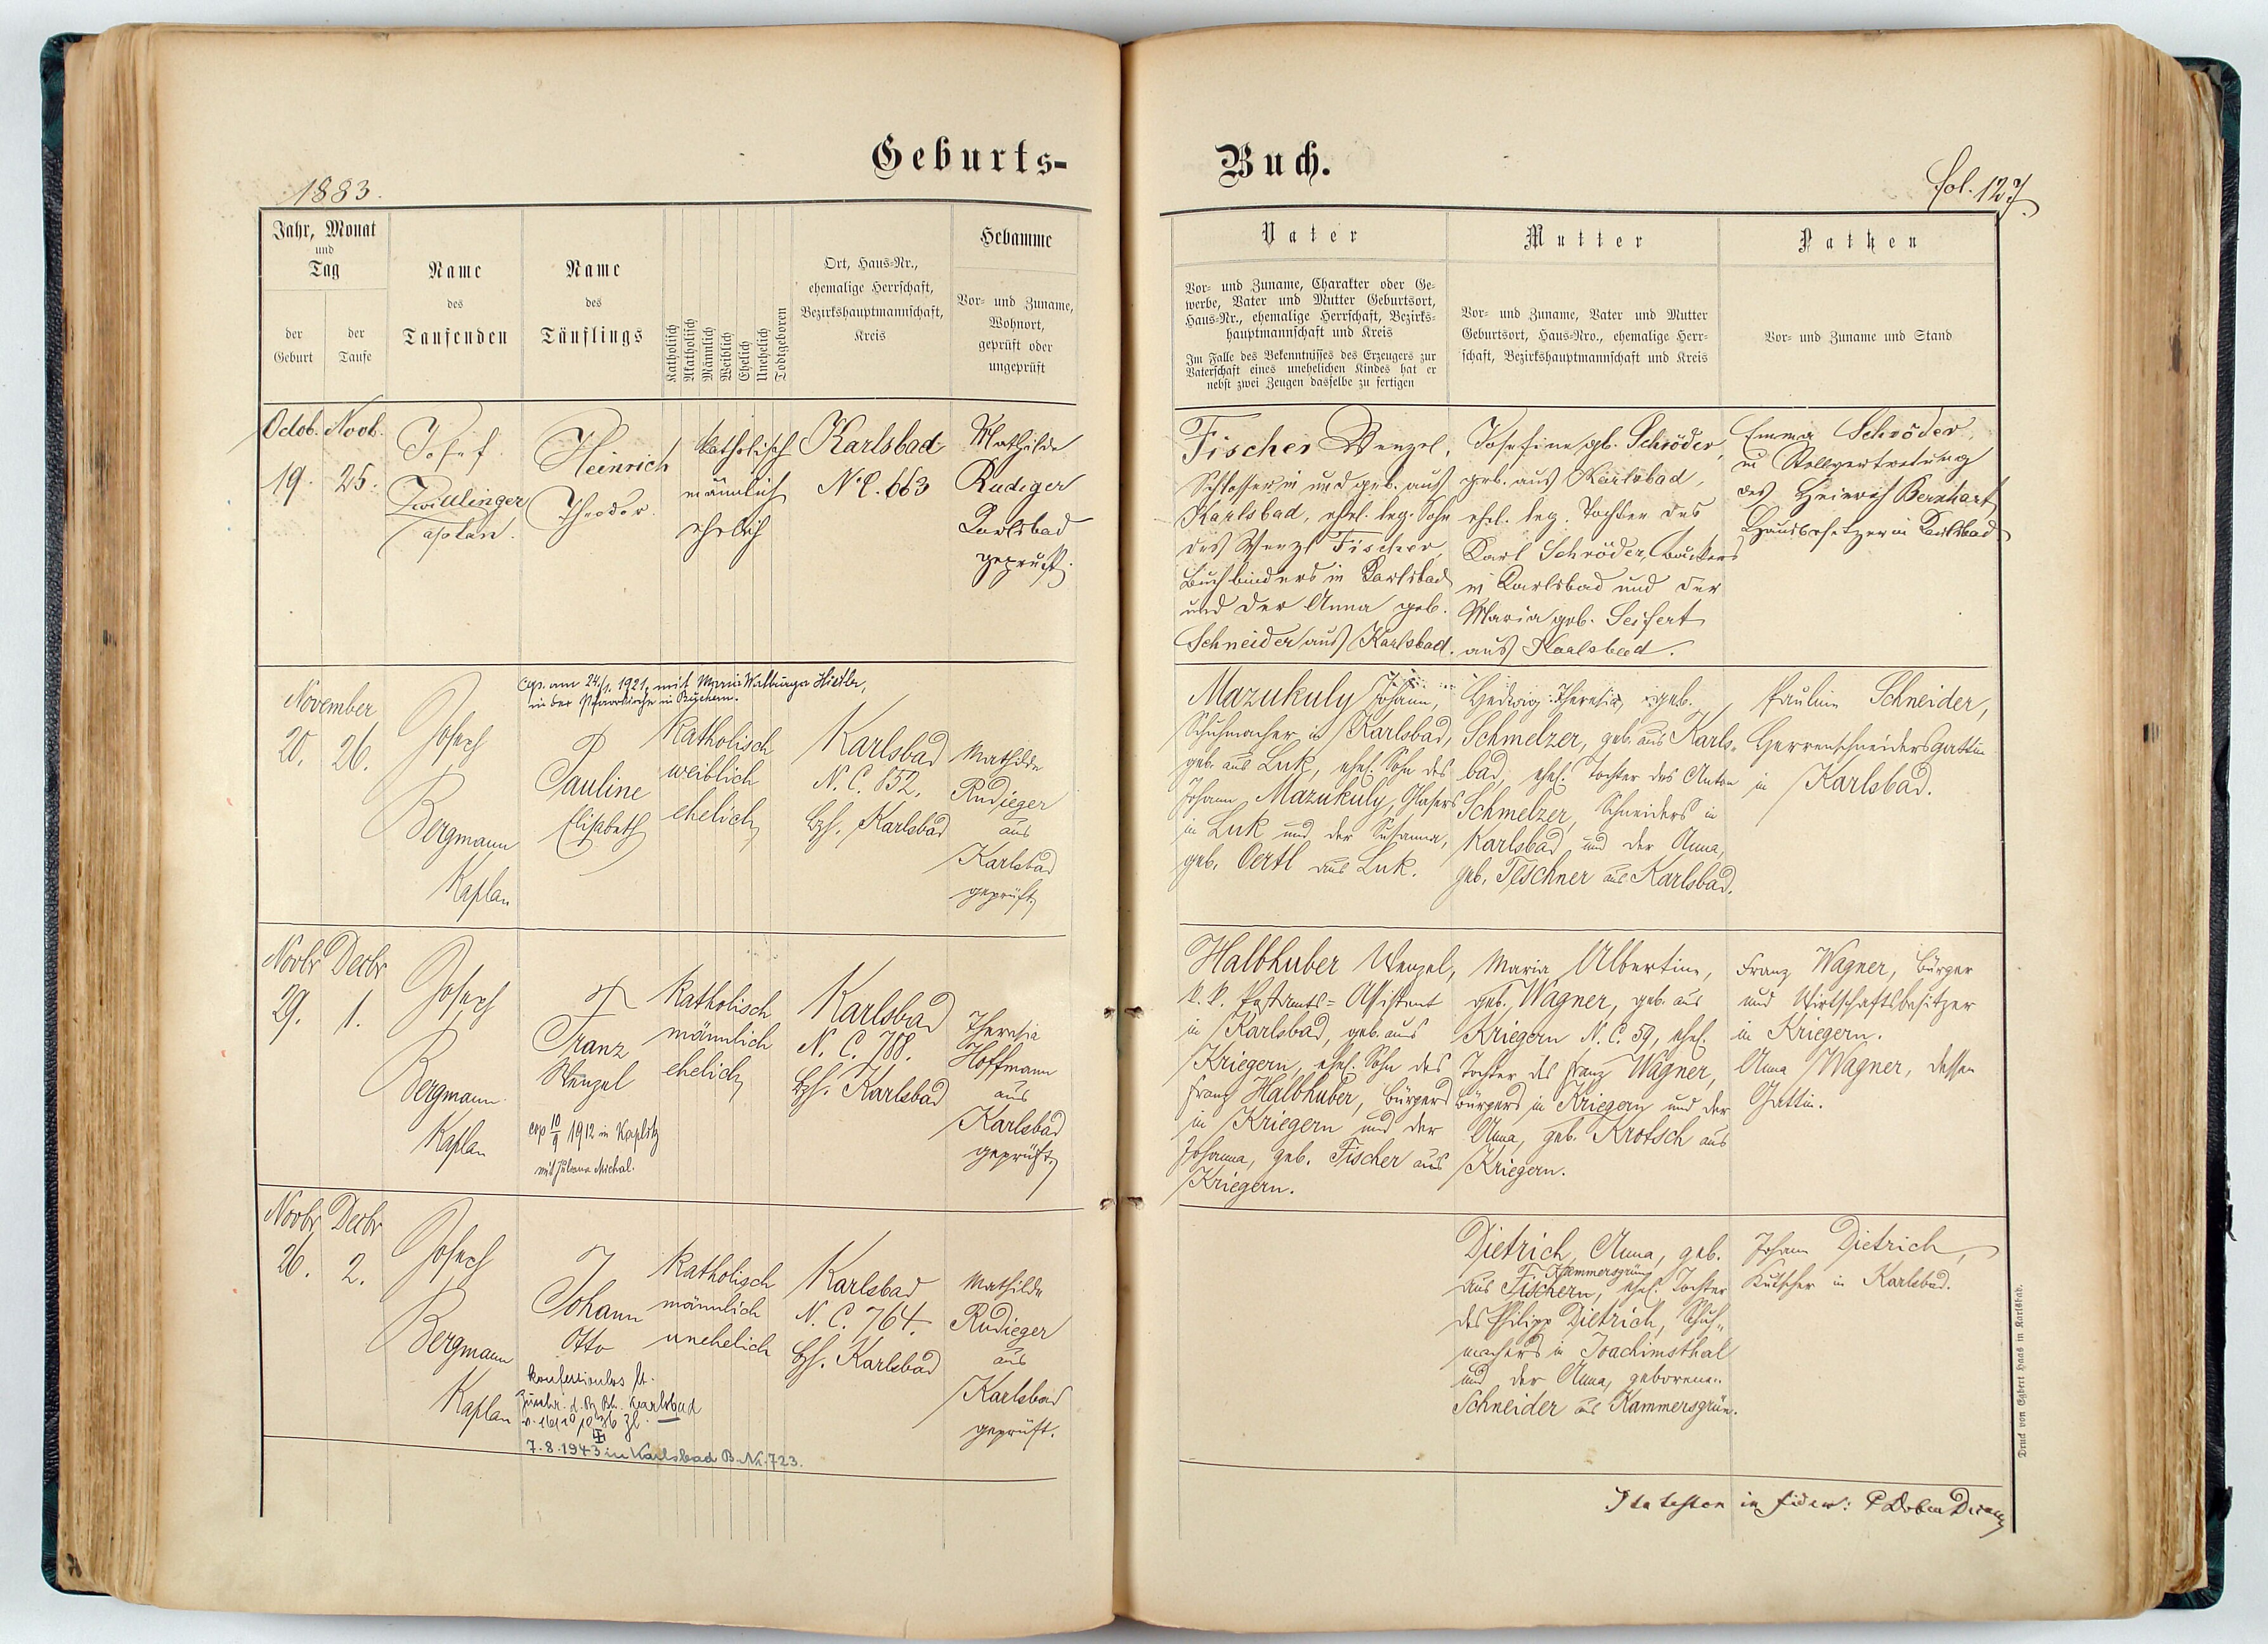 Geburts-
Buch.
1883.
fol. 127.
Jahr, Monat
und
Tag
der
Geburt
der
Taufe
Name
des
Taufenden
Name
des
Täuflings
Katholisch
Akatholisch
Männlich
Weiblich
Ehelich
Unehelich
Todtgeboren
Ort, Haus-Nr.,
ehemalige Herrschaft,
Bezirkshauptmannschaft,
Kreis
Hebamme
Vor- und Zuname,
Wohnort,
geprüft oder
ungeprüft
Vater
Vor- und Zuname, Charakter oder Ge-
werbe, Vater und Mutter Geburtsort,
Haus-Nr., ehemalige Herrschaft, Bezirks-
hauptmannschaft und Kreis
Im Falle des Bekenntnisses des Erzeugers zur
Vaterschaft eines unehelichen Kindes hat er
nebst zwei Zeugen dasselbe zu fertigen
Mutter
Vor- und Zuname, Vater und Mutter
Geburtsort, Haus-Nro., ehemalige Herr-
schaft, Bezirkshauptmannschaft und Kreis
Pathen
Vor- und Zuname und Stand
Octob. Novb.
19. 25.
Josef
Zwillinger
Caplan.
Heinrich
Theodor.
katholisch
männlich
ehelich
Karlsbad
N.C. 663
Mathilde
Rudiger
Karlsbad
geprüft.
Fischer Wenzel,
Schlosser in und geb. aus
Karlsbad, ehel. leg. Sohn
des Wenzl Fischer,
Buchbinders in Karlsbad
und der Anna geb.
Schneider aus Karlsbad.
Josefine gb. Schröder,
geb. aus Karlsbad,
ehel. leg. Tochter des
Karl Schröder, Bäckers
in Karlsbad und der
Maria geb. Seifert
aus Karlsbad.
Emma Schröder,
in Stellvertretung
des Heinrich Bernhart
Hausbesitzer in Karlsbad
cop. am 24./1. 1921, mit Maria Walburga
in der Pfarrkirche in
November
20. 26.
Joseph
Bergmann
Kaplan
Pauline
Elisabeth
Katholisch
weiblich
ehelich
Karlsbad
N. C. 852.
Bzh. Karlsbad
Mathilde
Rudieger
aus
Karlsbad
geprüft
Mazukuly Johann,
Schuhmacher in Karlsbad,
geb. aus Luk, ehel. Sohn des
Johann Mazukuly, Glasers
in Luk und der Susanna,
geb. Oertl aus Luk.
Hedwig Theresia, geb.
Schmelzer, geb. aus Karls-
bad, ehel. Tochter des Anton
Schmelzer, Schneiders in
Karlsbad und der Anna,
geb. Teschner aus Karlsbad.
Pauline Schneider,
Herrenschneidersgattin
in Karlsbad.
Novbr Decbr
29. 1.
Joseph
Bergmann
Kaplan
Franz
Wenzel
cop 10/9 1912 in Kaplitz
mit Juliana Michal.
Katholisch
männlich
ehelich
Karlsbad
N. C. 788.
Bzh. Karlsbad
Theresia
Hoffmann
aus
Karlsbad
geprüft
Halbhuber Wenzel,
k. k. Postamts-Assistent
in Karlsbad, geb. aus
Kriegern, ehel. Sohn des
Franz Halbhuber, Bürgers
in Kriegern und der
Johanna, geb. Fischer aus
Kriegern.
Maria Albertine,
geb. Wagner, geb. aus
Kriegern N. C. 59, ehel.
Tochter des Franz Wagner,
Bürgers in Kriegern und der
Anna, geb. Krotsch aus
Kriegern.
Franz Wagner, Bürger
und Wirtschaftsbesitzer
in Kriegern.
Anna Wagner, dessen
Gattin.
Novbr Decbr
26. 2.
Joseph
Bergmann
Kaplan
Johann
Otto
konfessionslos lt.
Karlsbad
7.8.1943 in Karlsbad B. Nr. 723.
Katholisch
männlich
unehelich
Karlsbad
N. C. 764.
Bzh. Karlsbad
Mathilde
Rudieger
aus
Karlsbad
geprüft.
Dietrich, Anna, geb.
Kammersgrün
aus Fischern, ehel. Tochter
des Philipp Dietrich, Schuh-
machers in Joachimsthal
und der Anna, geborene
Schneider aus Kammersgrün.
Johann Dietrich,
Kutscher in Karlsbad.
Ita testor in fidem:
Druck von Egbert Haas in Karlsbad.